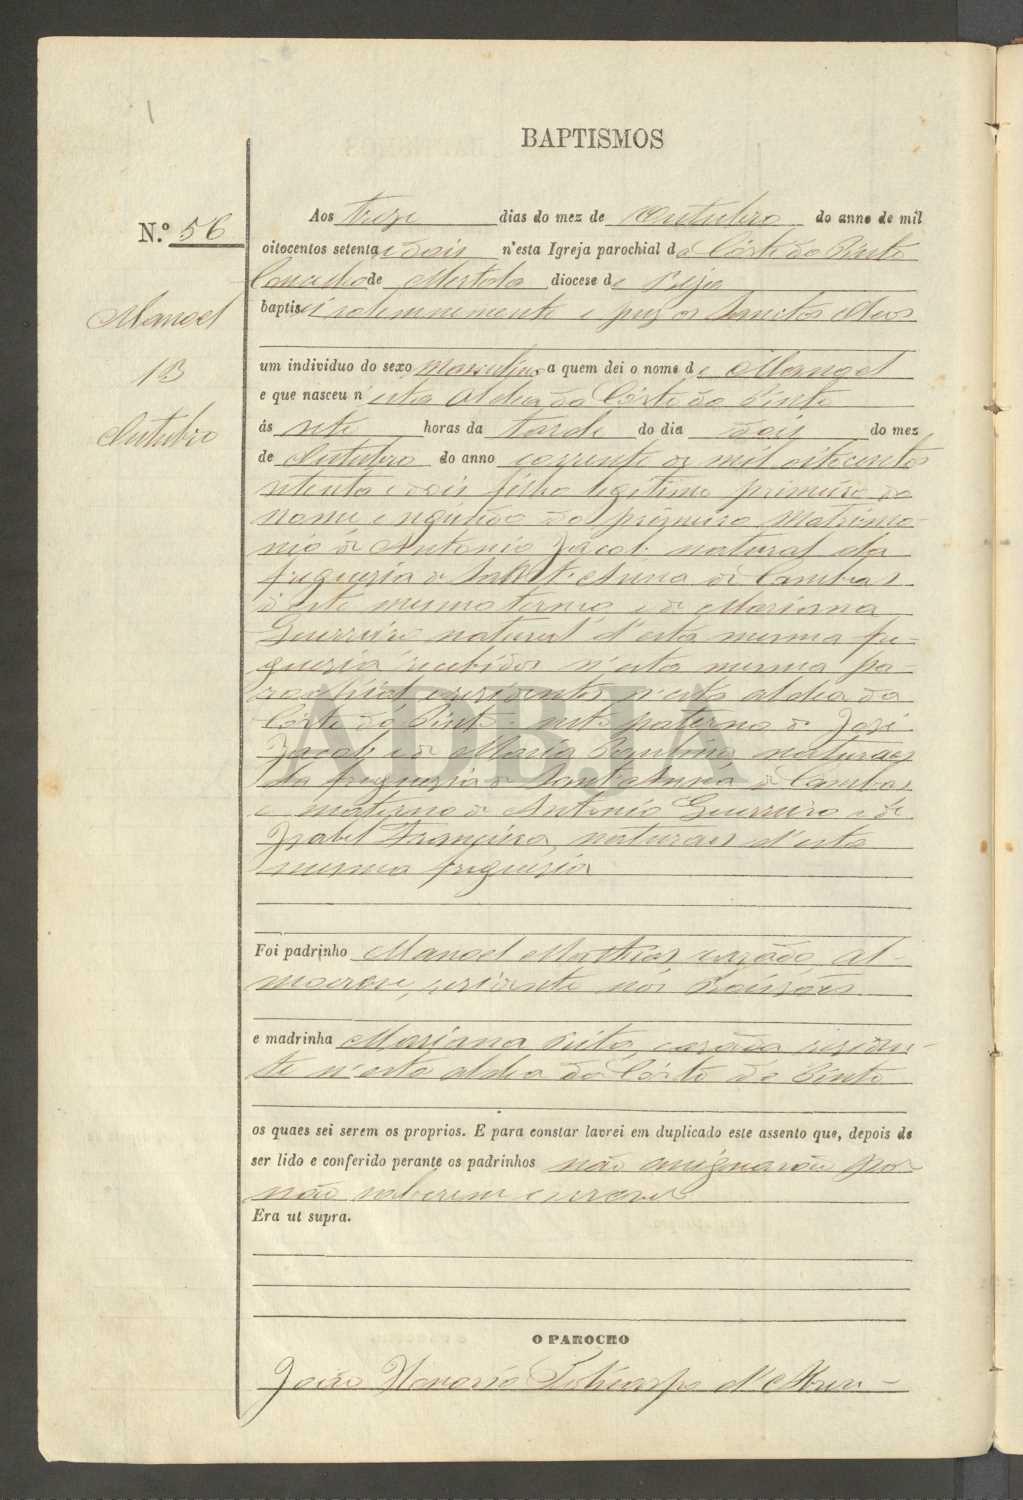 BAPTISMOS
N.º 56
Manoel
13
Outubro
Aos treze dias do mez de Outubro do anno de mil
oitocentos setenta e dois n'esta Igreja parochial da Côrte do Pinto
Concelho de Mertola diocese de Beja
baptisei solemnemente e puz os Sanctos Oleos
um individuo do sexo masculino a quem dei o nome de Manoel
e que nasceu n'esta Aldea da Côrte do Pinto
ás sete horas da tarde do dia dois do mez
de Outubro do anno corrente de mil oitocentos
setenta e dois filho legitimo primeiro do
nome e segundo do primeiro Matrimo-
nio de Antonio Jacob natural da
freguezia de Santa Anna de Cambas
d'este mesmo termo, e de Mariana
Guerreiro natural d'esta mesma fre-
guezia recebidos n'esta mesma pa-
rochial e residentes n'esta aldea da
Côrte do Pinto: neto paterno de José
Jacob e de Maria naturaes
da freguezia de Sant'Anna de Cambas
e materno de Antonio Guerreiro e de
Izabel Francisca, naturaes d'esta
mesma freguezia
ADBJA
Foi padrinho Manoel Mathias cazado al-
mocreve, residente nos
e madrinha Mariana Rita, cazada residen-
te n'esta aldea da Côrte do Pinto
os quaes sei serem os proprios. E para constar lavrei em duplicado este assento que, depois de
ser lido e conferido perante os padrinhos não assignarão por
não saberem escrever
Era ut supra.
O PAROCHO
João Honorio Policarpo d'Abreu